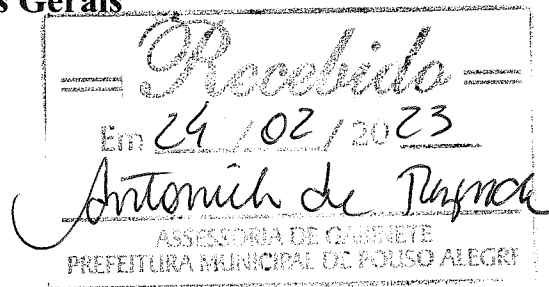 s Gerais
Recebido
Em 24 / 02 / 2023
de
ASSESSORIA DE GABINETE
PREFEITURA MUNICIPAL DE POUSO ALEGRE